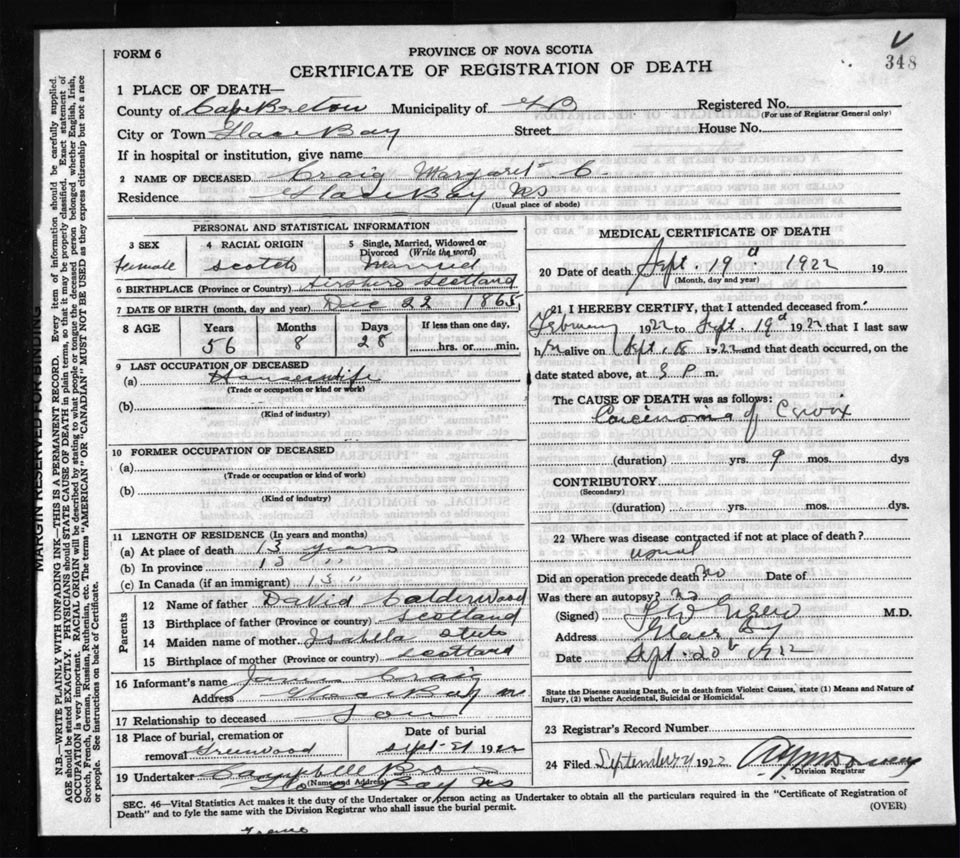 348
FORM 6
PROVINCE OF NOVA SCOTIA
CERTIFICATE OF REGISTRATION OF DEATH
1 PLACE OF DEATH—
County of Cape Breton Municipality of Registered No.
(For use of Registrar General only)
City or Town Glace Bay Street House No.
If in hospital or institution, give name
2 NAME OF DECEASED Craig Margaret C.
Residence Glace Bay NS
(Usual place of abode)
PERSONAL AND STATISTICAL INFORMATION
3 SEX 4 RACIAL ORIGIN 5 Single, Married, Widowed or Divorced (Write the word)
female scotch Married
6 BIRTHPLACE (Province or Country) Scotland
7 DATE OF BIRTH (month, day and year) Dec 22 1865
8 AGE Years Months Days If less than one day,
56 8 28 hrs. or min.
9 LAST OCCUPATION OF DECEASED
(a) Housewife
(Trade or occupation or kind or work)
(b)
(Kind of industry)
10 FORMER OCCUPATION OF DECEASED
(a)
(Trade or occupation or kind of work)
(b)
(Kind of industry)
11 LENGTH OF RESIDENCE (In years and months)
(a) At place of death 13 years
(b) In province 13 "
(c) In Canada (if an immigrant) 13 "
Parents
12 Name of father David Calderwood
13 Birthplace of father (Province or country) Scotland
14 Maiden name of mother Isabela
15 Birthplace of mother (Province or country) Scotland
16 Informant's name James Craig
Address Glace Bay
17 Relationship to deceased Son
18 Place of burial, cremation or removal Greenwood
Date of burial
Sept 21 1922
19 Undertaker Campbell Bros
(Name and Address)
Glace Bay NS
MEDICAL CERTIFICATE OF DEATH
20 Date of death Sept. 19th 1922 19
(Month, day and year)
21 I HEREBY CERTIFY, that I attended deceased from
February 1922 to Sept. 19th 1922 that I last saw
h alive on Sept. 18 1922 and that death occurred, on the
date stated above, at 3 P. m.
The CAUSE OF DEATH was as follows:
Carcinoma of Cervix
(duration) yrs. 9 mos. dys
CONTRIBUTORY
(Secondary)
(duration) yrs. mos. dys.
22 Where was disease contracted if not at place of death?
usual
Did an operation precede death? no Date of
Was there an autopsy? no
(Signed) M.D.
Address Glace Bay
Date Sept. 20th 1922
State the Disease causing Death, or in death from Violent Causes, state (1) Means and Nature of
Injury, (2) whether Accidental, Suicidal or Homicidal.
23 Registrar's Record Number
24 Filed September 21 1922
Division Registrar
SEC. 46—Vital Statistics Act makes it the duty of the Undertaker or person acting as Undertaker to obtain all the particulars required in the "Certificate of Registration of
Death" and to fyle the same with the Division Registrar who shall issue the burial permit.
(OVER)
MARGIN RESERVED FOR BINDING
N.B.—WRITE PLAINLY WITH UNFADING INK—THIS IS A PERMANENT RECORD. Every item of information should be carefully supplied.
AGE should be stated EXACTLY. PHYSICIANS should STATE CAUSE OF DEATH in plain terms, so that it may be properly classified. Exact statement of
OCCUPATION is very important. RACIAL ORIGIN will be described by stating to what people or tongue the deceased person belonged whether English, Irish,
Scotch, French, German, Russian, Ruthenian, etc. The terms "AMERICAN" OR "CANADIAN" MUST NOT BE USED as they express citizenship but not a race
or people. See instructions on back of Certificate.